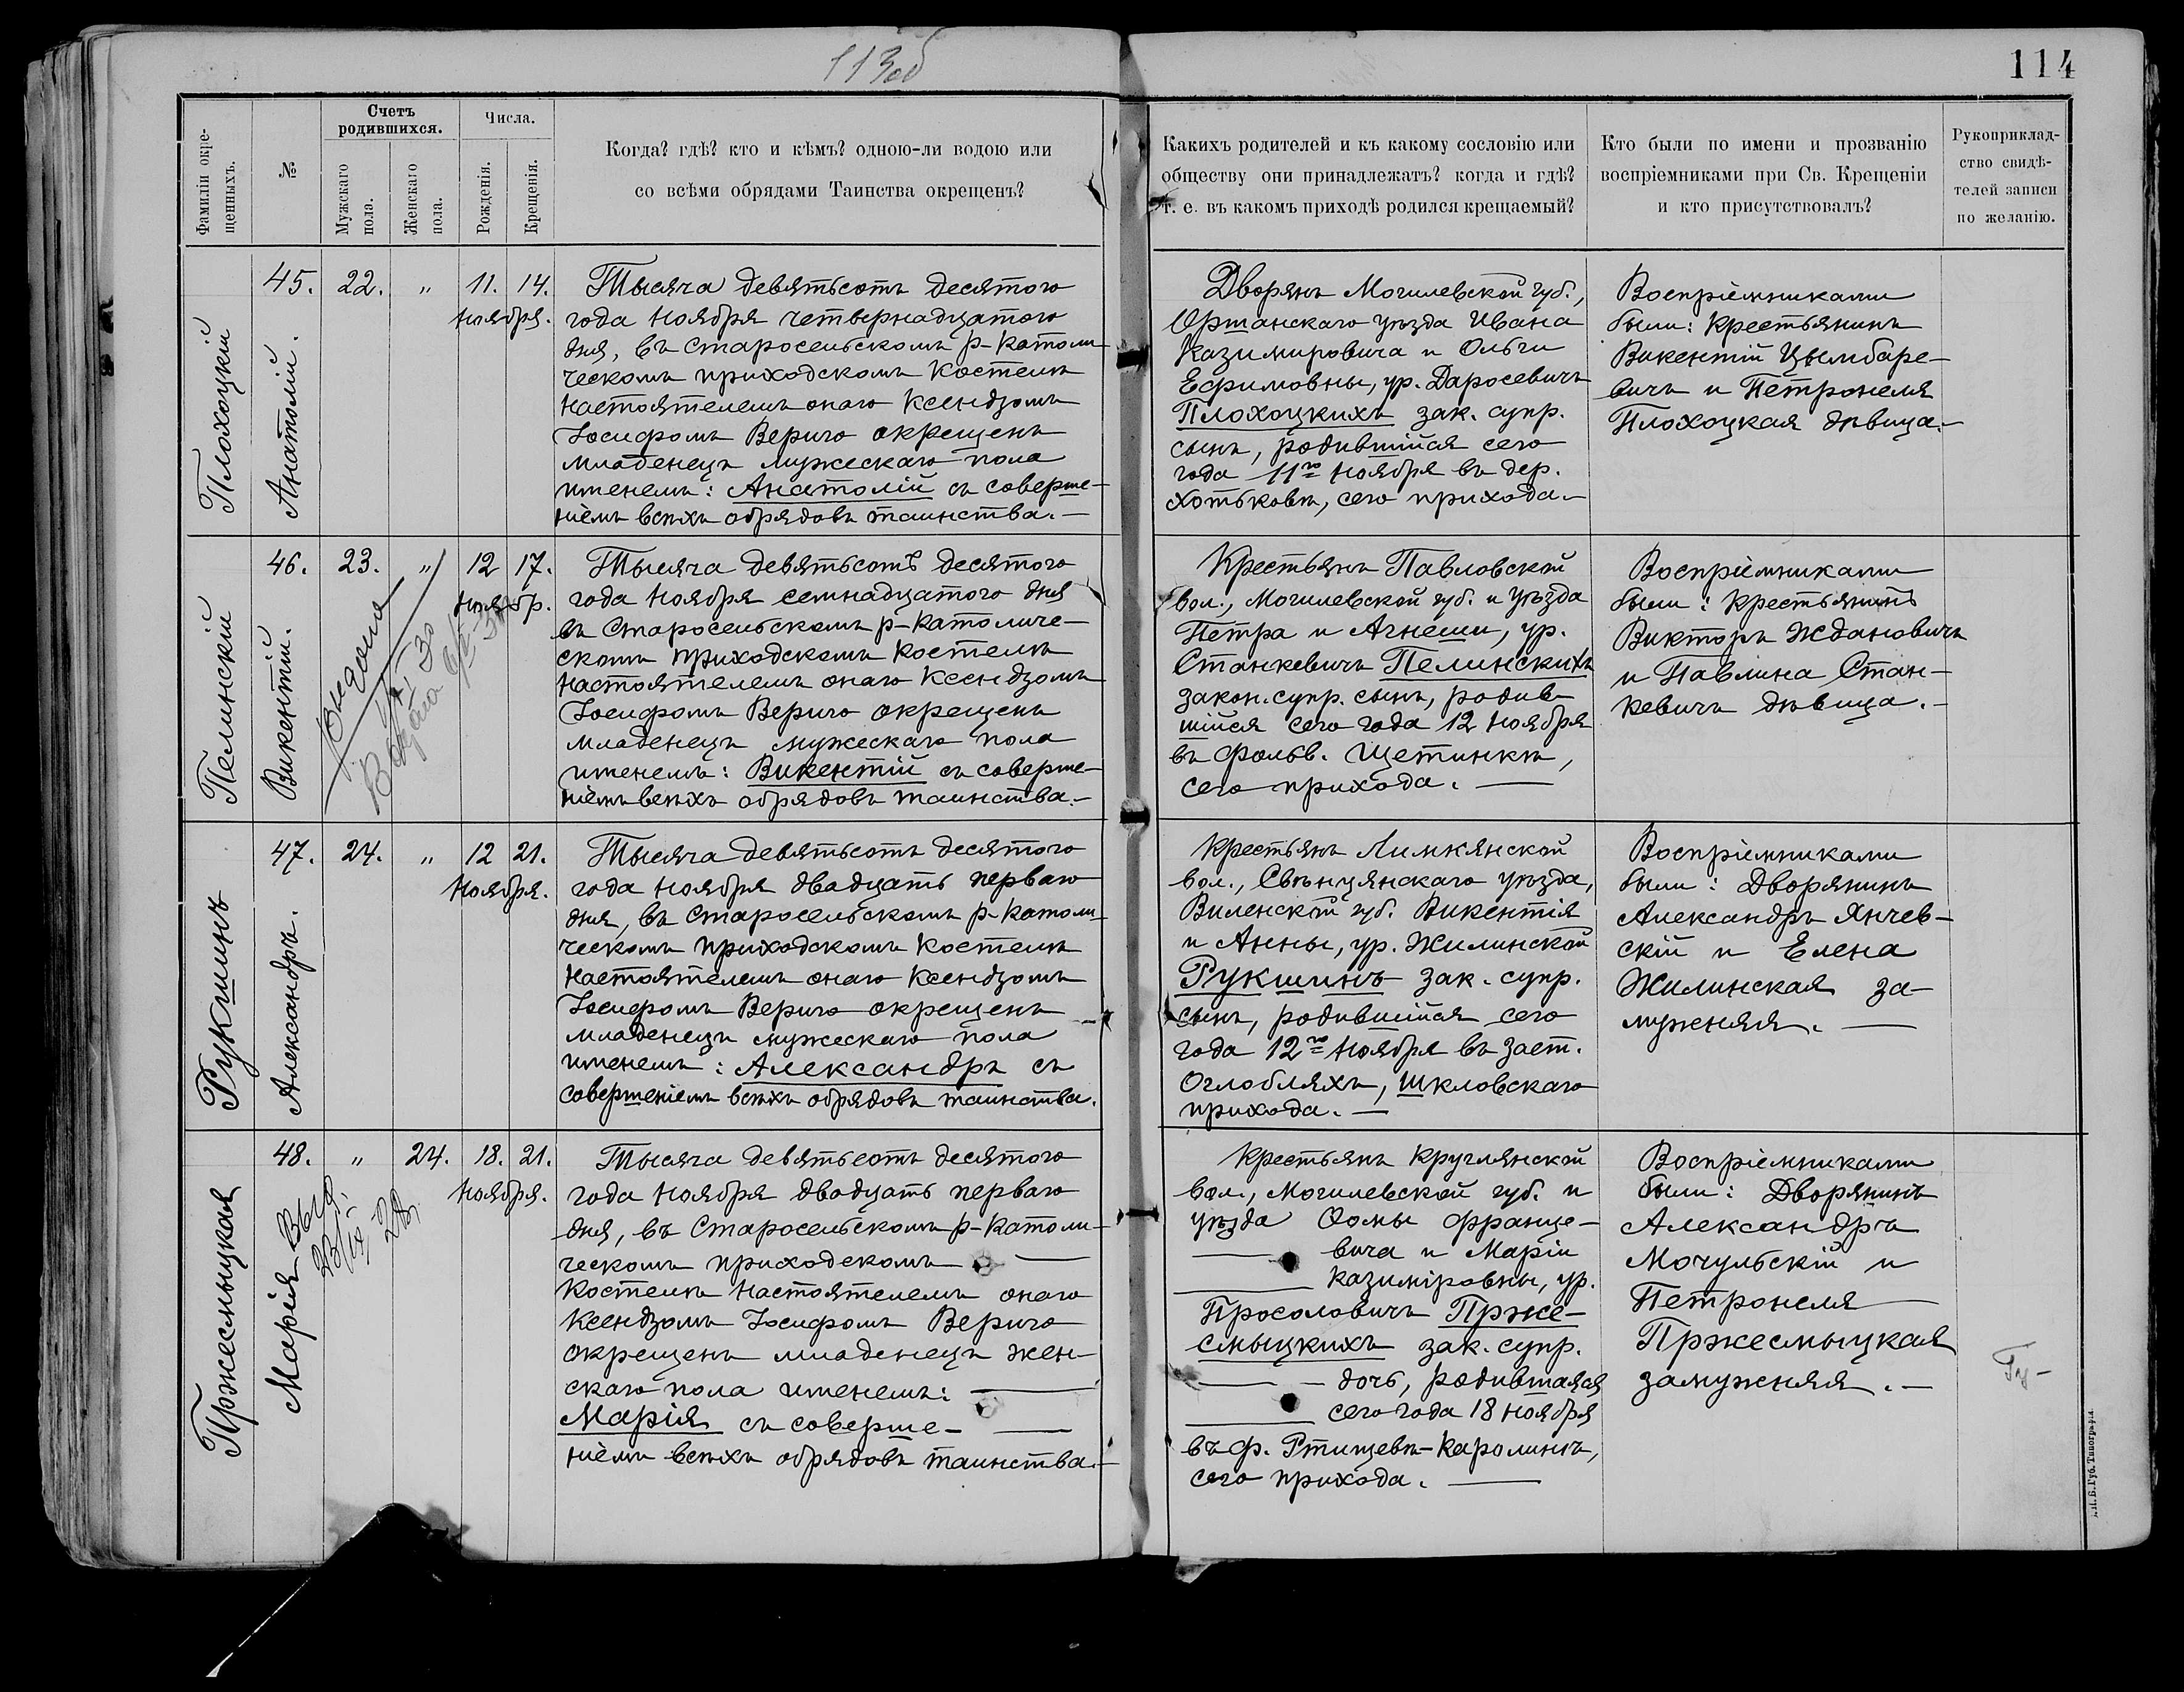 113об
114
Фамиліи окре-
щенныхъ.
№
Счетъ
родившихся.
Мужскаго
пола.
Женскаго
пола.
Числа.
Рожденія.
Крещенія.
Когда? гдѣ? кто и кѣмъ? одною-ли водою или
со всѣми обрядами Таинства окрещенъ?
Какихъ родителей и къ какому сословію или
обществу они принадлежатъ? когда и гдѣ?
т. е. въ какомъ приходѣ родился крещаемый?
Кто были по имени и прозванію
воспріемниками при Св. Крещеніи
и кто присутствовалъ?
Рукоприклад-
ство свидѣ-
телей записи
по желанію.
Плохоцкій
45.
Анатолій.
22.
"
11. 14.
Ноября.
Тысяча девятьсотъ десятого
года Ноября четвернадцатого
дня, въ Старосельскомъ р-католи-
ческомъ приходскомъ Костелѣ
Настоятелемъ онаго Ксендзомъ
Іосифомъ Верыго окрещенъ
младенецъ мужескаго пола
именемъ: Анатолій съ соверше-
ніемъ всѣхъ обрядовъ таинства.—
Дворянъ Могилевской губ.,
Оршанскаго уѣзда Ивана
Казимировича и Ольги
Ефимовны, ур. Даросевичъ
Плохоцкихъ зак. супр.
сынъ, родившійся сего
года 11го Ноября въ дер.
Хотьковѣ, сего прихода.—
Воспріемниками
были: Крестьянинъ
Викентій Цымбаре-
вичъ и Петронеля
Плохоцкая дѣвица.—
Пелинскій
46.
Викентій.
23.
"
12 17.
Ноябр.
Выдана
Тысяча девятьсотъ десятого
года Ноября семнадцатого дня
въ Старосельскомъ р-католиче-
скомъ приходскомъ Костелѣ
Настоятелемъ онаго Ксендзомъ
Іосифомъ Верыго окрещенъ
младенецъ мужескаго пола
именемъ: Викентій съ соверше-
ніемъ всѣхъ обрядовъ таинства.—
Крестьянъ Павловской
вол., Могилевской губ. и уѣзда
Петра и Агнеши, ур.
Станкевичъ Пелинскихъ
закон. супр. сынъ, родив-
шійся сего года 12 Ноября
въ фольв. Щетинкѣ,
сего прихода. —
Воспріемниками
были: Крестьянинъ
Викторъ Ждановичъ
и Павлина Стан-
кевичъ дѣвица.—
Рукшинъ
47.
Александръ.
24.
"
12 21.
Ноября.
Тысяча девятьсотъ десятого
года Ноября двадцать перваго
дня, въ Старосельскомъ р-католи-
ческомъ приходскомъ Костелѣ
Настоятелемъ онаго Ксендзомъ
Іосифомъ Верыго окрещенъ
младенецъ мужескаго пола
именемъ: Александръ съ
совершеніемъ всѣхъ обрядовъ таинства.
Крестьянъ Лимкянской
вол., Свѣнцянскаго уѣзда,
Виленской губ. Викентія
и Анны, ур. Жилинской
Рукшинъ зак. супр.
сынъ, родившійся сего
года 12го Ноября въ заст.
Оглобляхъ, Шкловскаго
прихода. —
Воспріемниками
были: Дворянинъ
Александръ Янчев-
скій и Елена
Жилинская за-
мужняя. —
Пржесмыцкая
48.
Марія
"
24.
18. 21.
Ноября.
Тысяча девятьсотъ десятого
года Ноября двадцать перваго
дня, въ Старосельскомъ р-католи-
ческомъ приходскомъ —
Костелѣ Настоятелемъ онаго
Ксендзомъ Іосифомъ Верыго
окрещенъ младенецъ жен-
скаго пола именемъ: —
Марія съ соверше- —
ніемъ всѣхъ обрядовъ таинства.—
Крестьянъ Круглянской
вол., Могилевской губ. и
уѣзда Ѳомы Францe-
— вича и Маріи
— Казиміровны, ур.
Просоловичъ Прже-
смыцкихъ зак. супр.
— дочь, родившаяся
— сего года 18 Ноября
въ ф. Ртищевѣ-Каролинѣ,
сего прихода. —
Воспріемниками
были: Дворянинъ
Александръ
Мочульскій и
Петронеля —
Пржесмыцкая
замужняя.—
Губ. Типографія.